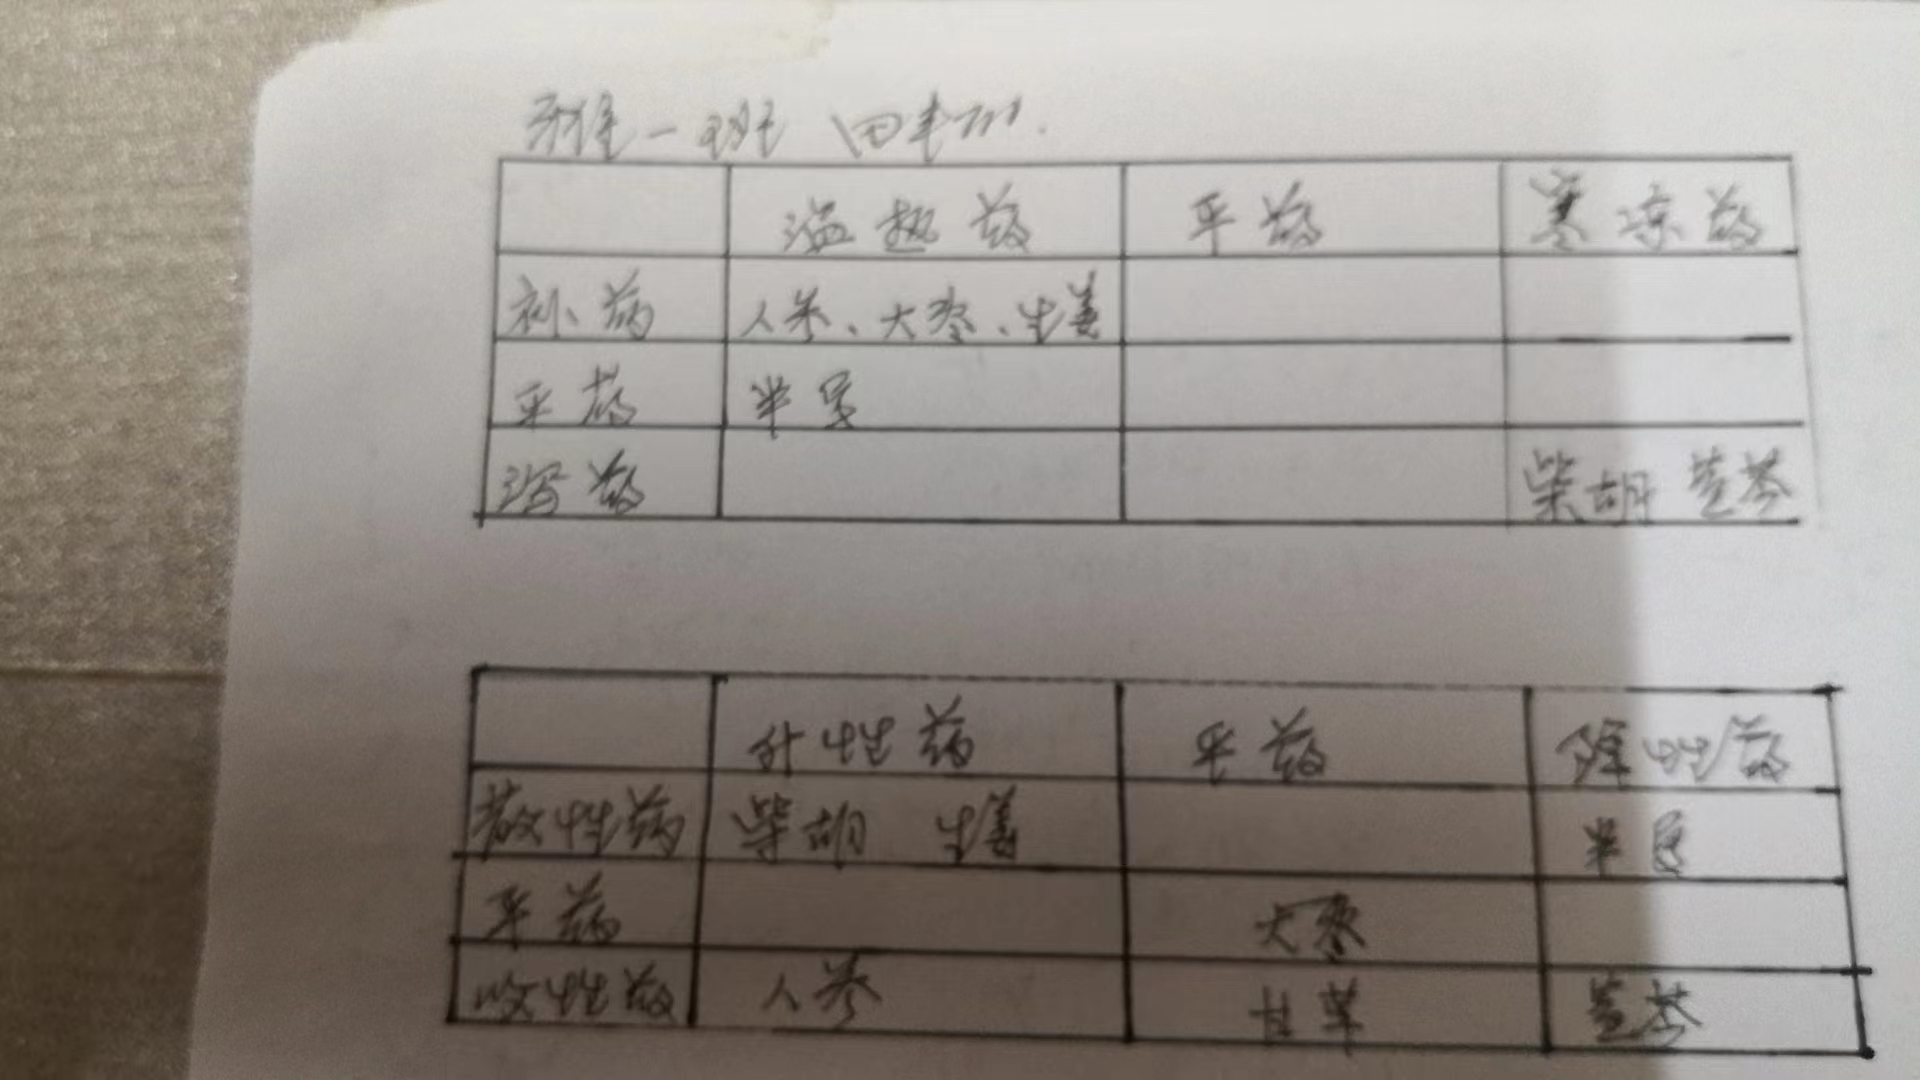 雅一班
温热药 平药 寒凉药
补药 人参、大枣、生姜
平药 半夏
泻药 柴胡 黄芩
升性药 平药 降性药
散性药 柴胡 生姜 半夏
平药 大枣
收性药 人参 甘草 黄芩